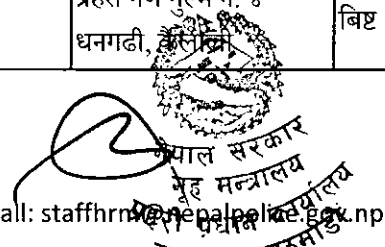 धनगढी, कैलाली
बिष्ट
नेपाल सरकार
गृह मन्त्रालय
प्रहरी प्रधान कार्यालय
all: staffhrm@nepalpolice.gov.np